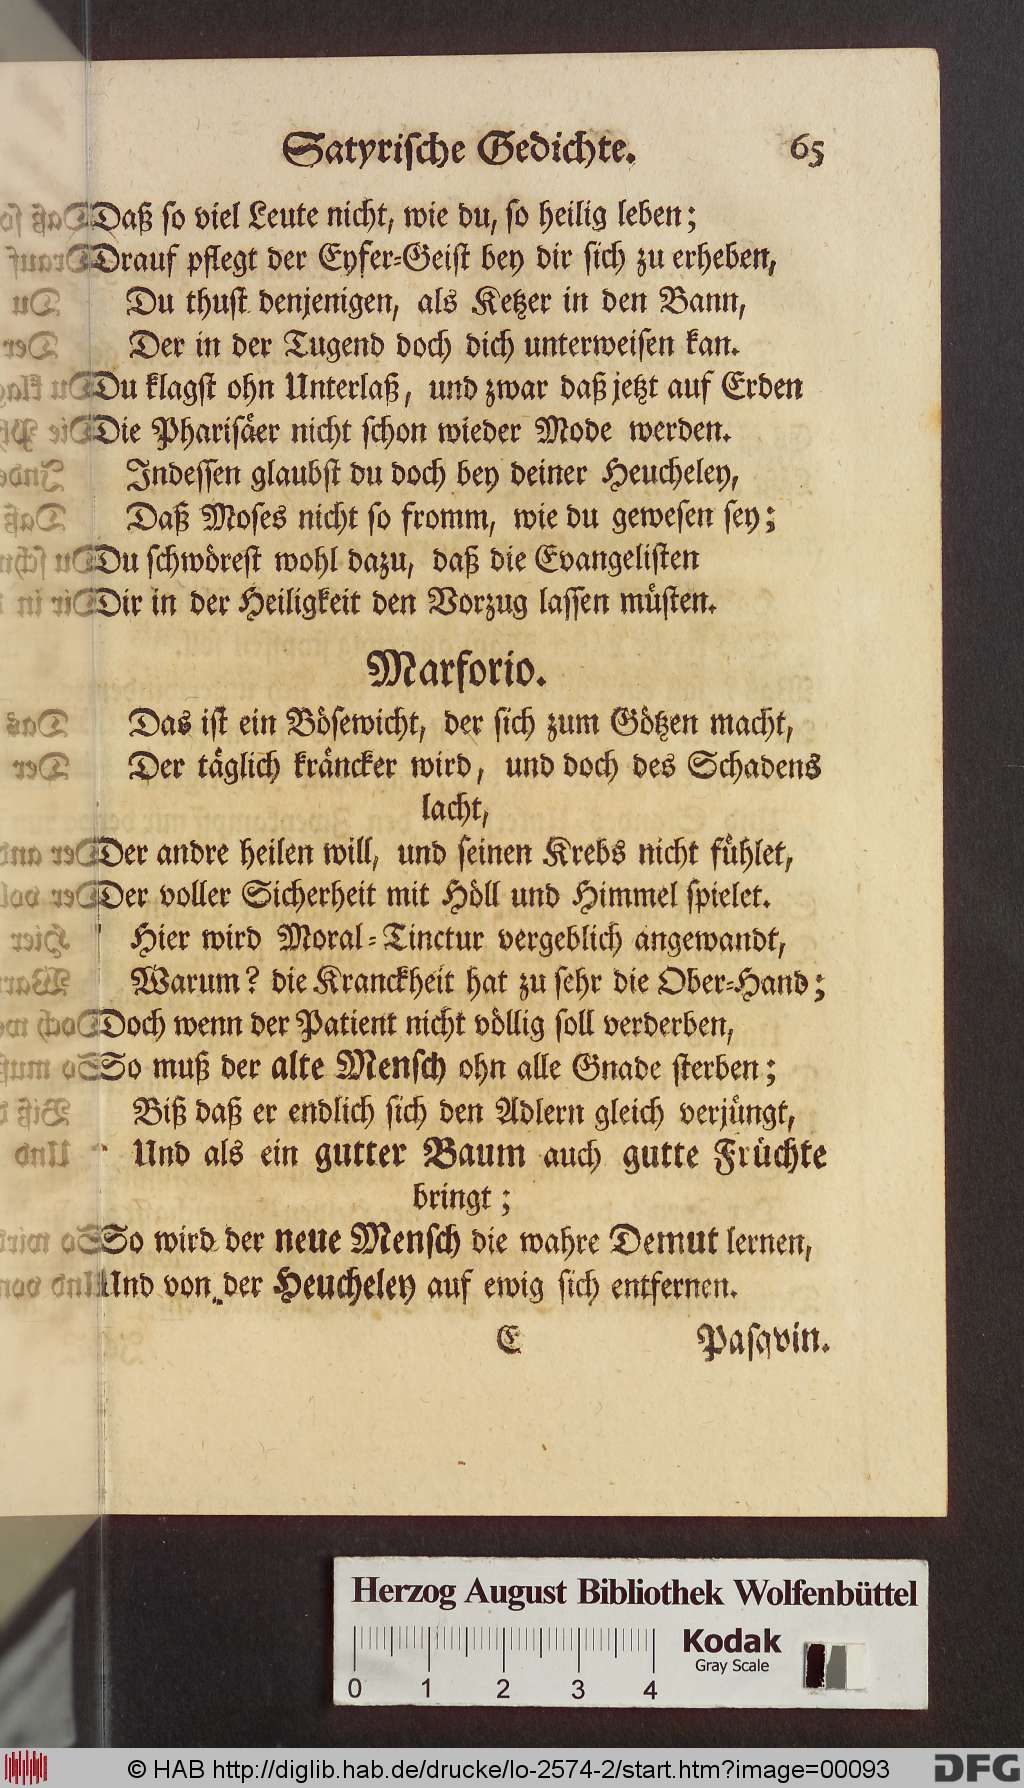 Satyrische Gedichte. 65
Daß so viel Leute nicht, wie du, so heilig leben;
Drauf pflegt der Eyfer-Geist bey dir sich zu erheben,
Du thust denjenigen, als Ketzer in den Bann,
Der in der Tugend doch dich unterweisen kan.
Du klagst ohn Unterlaß, und zwar daß jetzt auf Erden
Die Pharisäer nicht schon wieder Mode werden.
Indessen glaubst du doch bey deiner Heucheley,
Daß Moses nicht so fromm, wie du gewesen sey;
Du schwörest wohl dazu, daß die Evangelisten
Dir in der Heiligkeit den Vorzug lassen müsten.
Marforio.
Das ist ein Bösewicht, der sich zum Götzen macht,
Der täglich kräncker wird, und doch des Schadens
lacht,
Der andre heilen will, und seinen Krebs nicht fühlet,
Der voller Sicherheit mit Höll und Himmel spielet.
Hier wird Moral-Tinctur vergeblich angewandt,
Warum? die Kranckheit hat zu sehr die Ober-Hand;
Doch wenn der Patient nicht völlig soll verderben,
So muß der alte Mensch ohn alle Gnade sterben;
Biß daß er endlich sich den Adlern gleich verjüngt,
Und als ein gutter Baum auch gutte Früchte
bringt;
So wird der neue Mensch die wahre Demut lernen,
Und von der Heucheley auf ewig sich entfernen.
E Pasqvin.
Herzog August Bibliothek Wolfenbüttel
Kodak
Gray Scale
0 1 2 3 4
© HAB http://diglib.hab.de/drucke/lo-2574-2/start.htm?image=00093
DFG